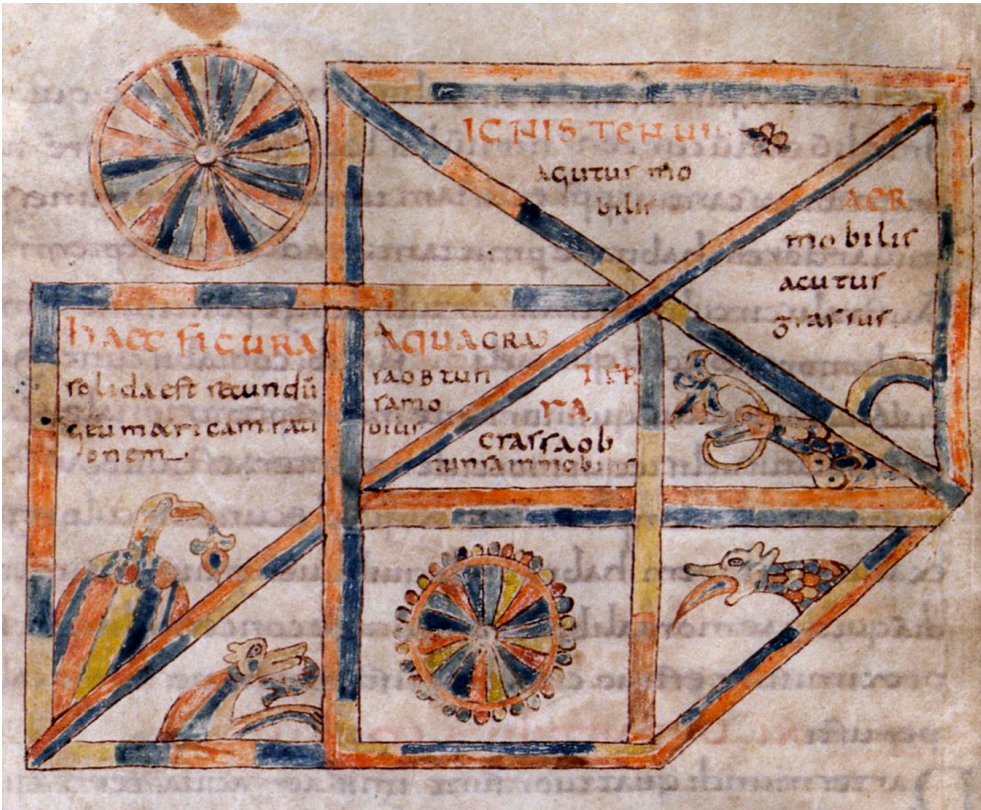 IGNIS TENUIS
acutus mo
bilis
AER
mobilis
acutus
grassus
HAEC FIGURA
solida est secundū
geumaricam rati
onem
AQUA CRAS
sa obtun
sa mo
bilis
TER
RA
crassa ob
tunsa inmobilis